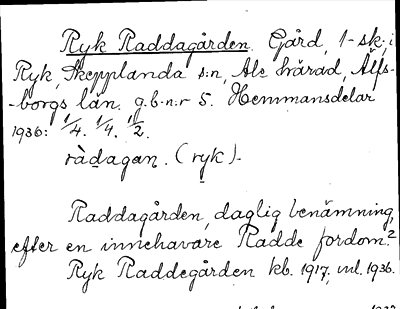 Ryk Raddagården. Gård, 1-sk. i
Ryk, Skepplanda s:n, Ale härad, Älfs-
-borgs län. g.b.n:r 5. Hemmansdelar
1936: 1/4. 1/4. 1/2.
ràdagan. (ryk).
Raddagården, daglig benämning,
efter en innehavare Radde fordom.2
Ryk Raddegården kb. 1917, ml. 1936.